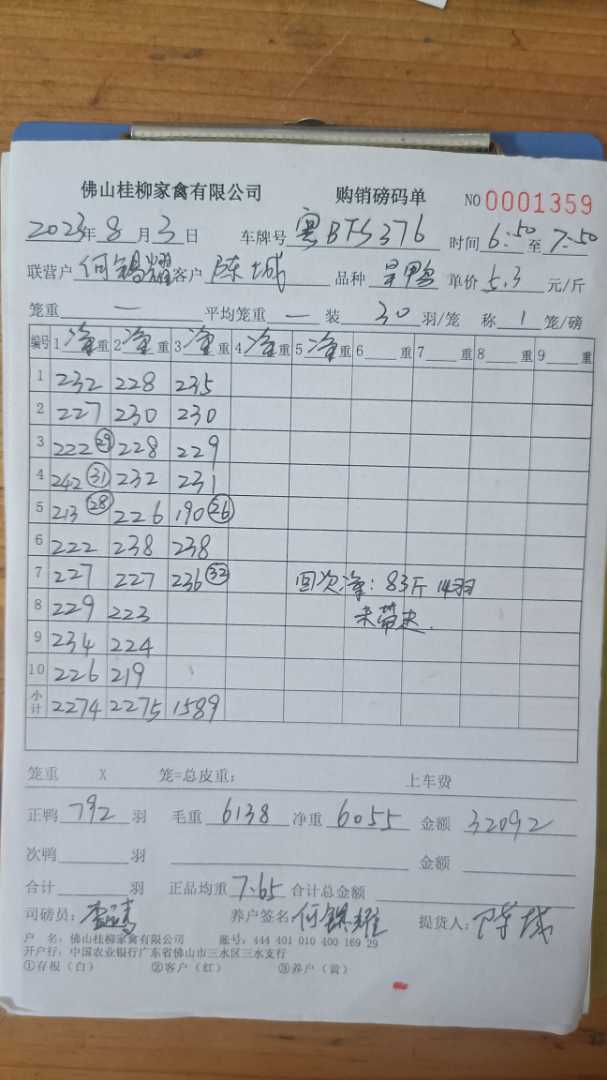 佛山桂柳家禽有限公司 购销磅码单 NO 0001359
2023年 8 月 3 日 车牌号 粤BTS376 时间 6:50 至 7:50
联营户 何锡耀 客户 陈城 品种 呈鸭 单价 5.3 元/斤
笼重 — 平均笼重 — 装 30 羽/笼 称 1 笼/磅
编号 1 净重 2 净重 3 净重 4 净重 5 净重 6 重 7 重 8 重 9 重
1 232 228 235
2 227 230 230
3 222 29 228 229
4 242 31 232 231
5 213 28 226 190 26
6 222 238 238
7 227 227 236 32 回次净:83斤 14羽
8 229 223 未带走.
9 234 224
10 226 219
小计 2274 2275 1589
笼重 X 笼=总皮重: 上车费
正鸭 792 羽 毛重 6138 净重 6055 金额 32092
次鸭 羽 金额
合计 羽 正品均重 7.65 合计总金额
司磅员: 养户签名 何锡耀 提货人: 陈城
户 名:佛山桂柳家禽有限公司 账号:444 401 010 400 169 29
开户行:中国农业银行广东省佛山市三水区三水支行
①存根(白) ②客户(红) ③养户(黄)